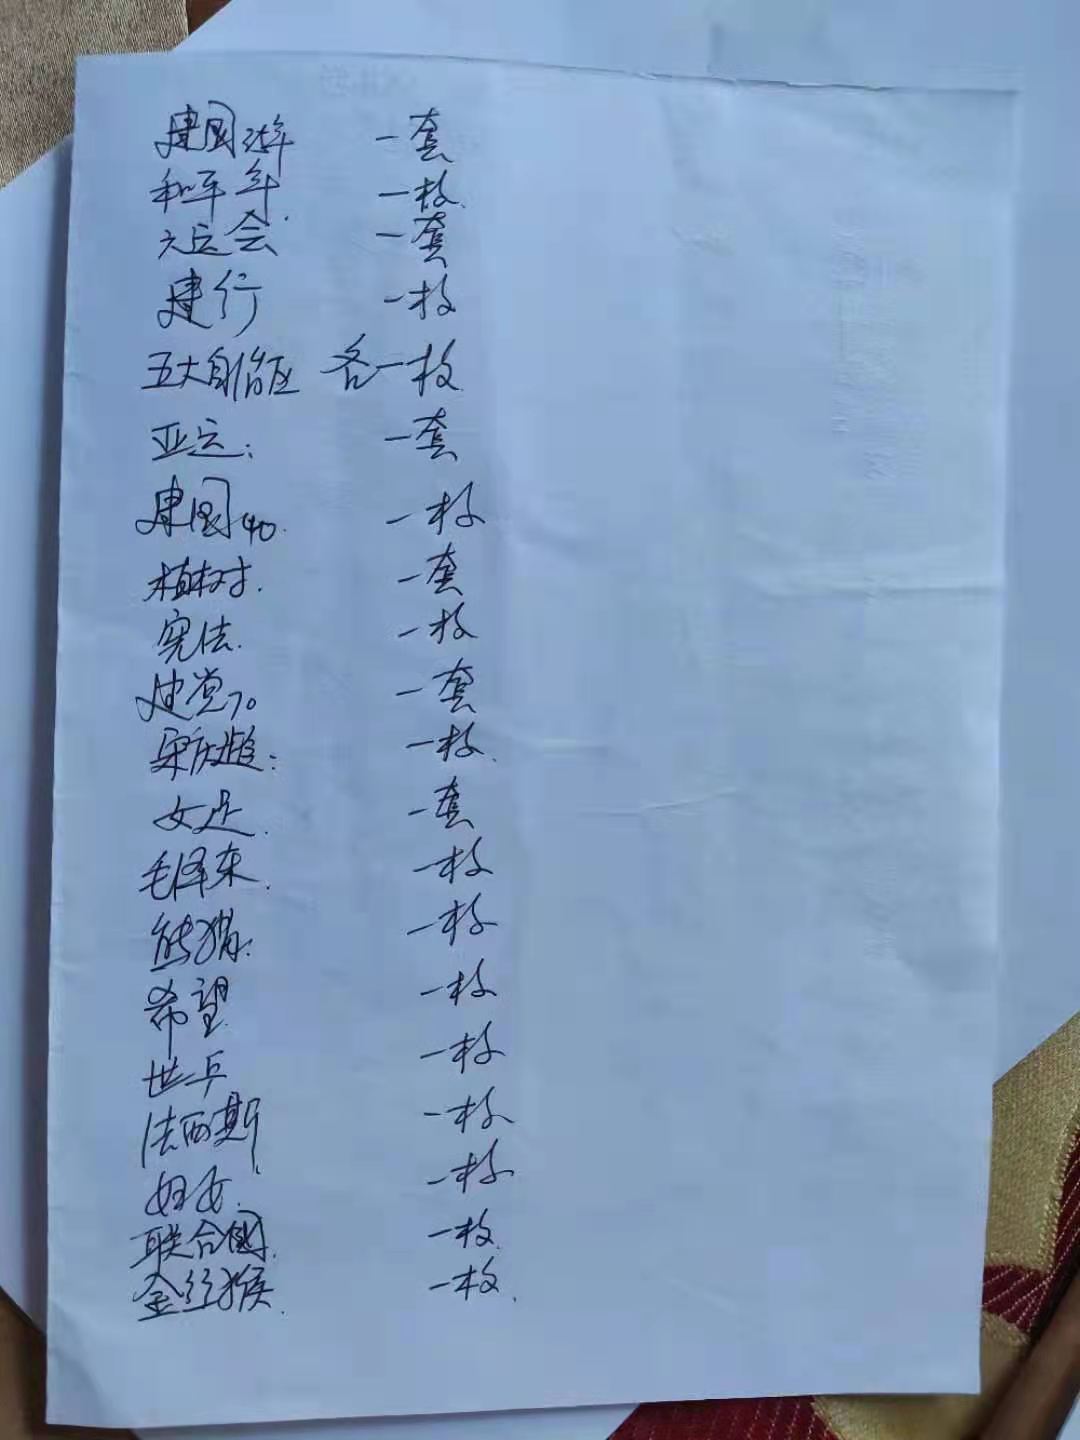 建国35年 一套
和平年 一枚
六运会 一套
建行 一枚
五大自治区 各一枚
亚运: 一套
建国40. 一枚
植树. 一套
宪法. 一枚
建党70 一套
宋庆龄: 一枚.
女足. 一套
毛泽东. 一枚
熊猫: 一枚
希望 一枚
世乒 一枚
法西斯 一枚
妇女. 一枚
联合国. 一枚
金丝猴. 一枚.